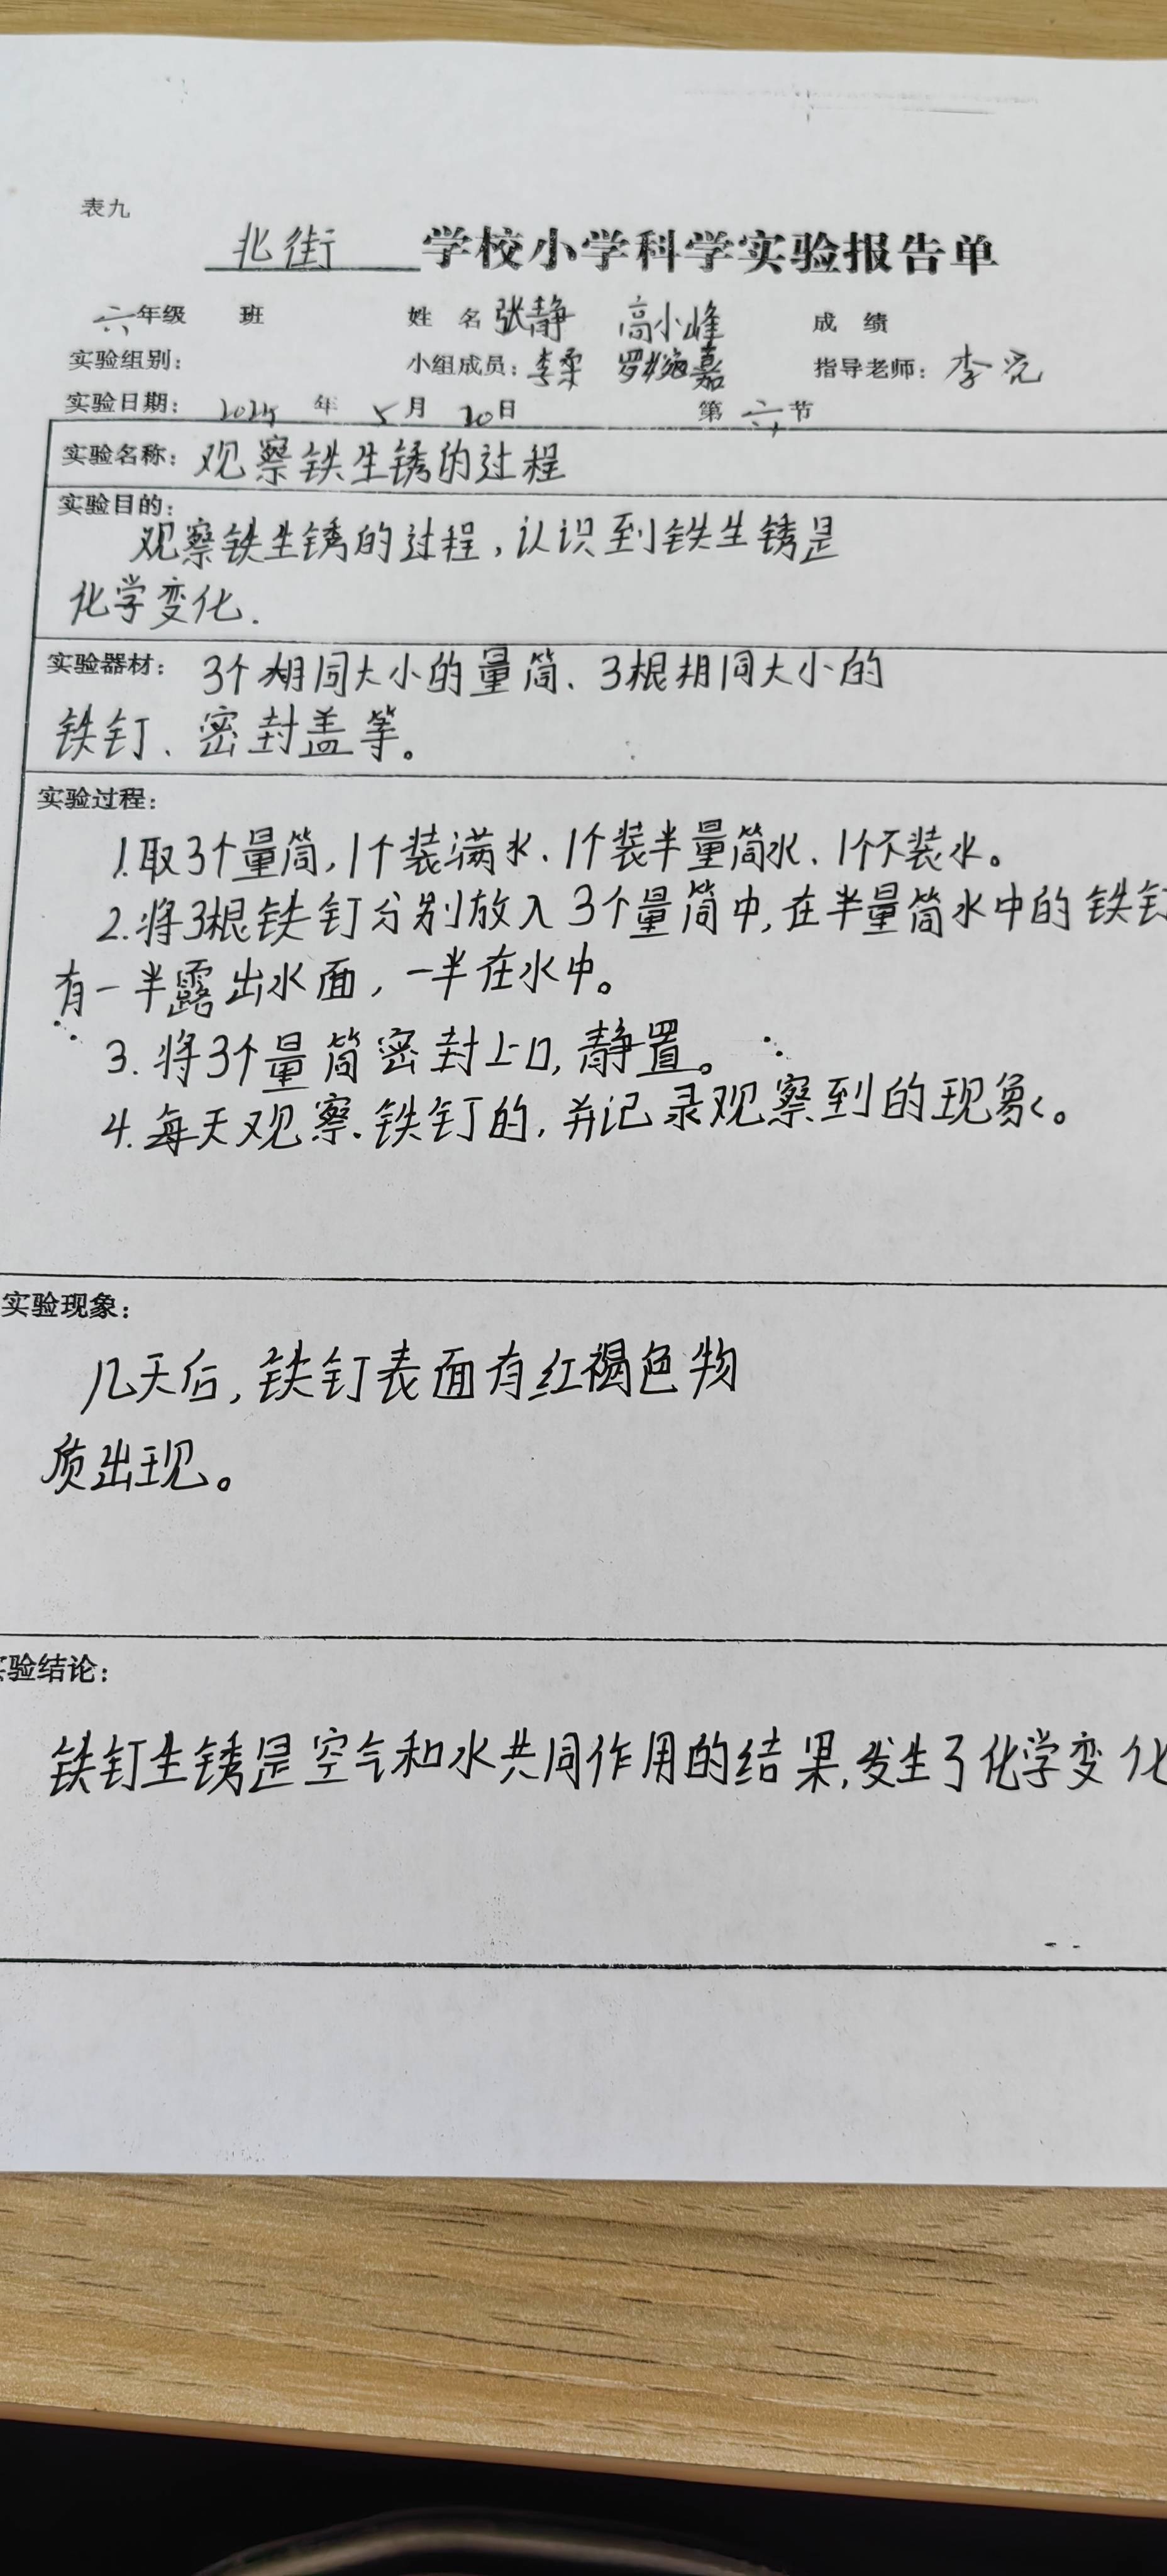 表九
北街 学校小学科学实验报告单
六年级 班 姓 名 张静 高小峰 成 绩
实验组别： 小组成员：李柔 嘉 指导老师：李
实验日期： 年 5月 20日 第 六 节
实验名称：观察铁生锈的过程
实验目的：
观察铁生锈的过程，认识到铁生锈是
化学变化.
实验器材：3个相同大小的量筒、3根相同大小的
铁钉、密封盖等。
实验过程：
1.取3个量筒，1个装满水、1个装半量筒水、1个不装水。
2.将3根铁钉分别放入3个量筒中，在半量筒水中的铁钉
有一半露出水面，一半在水中。
3.将3个量筒密封上口，静置。
4.每天观察.铁钉的，并记录观察到的现象。
实验现象：
几天后，铁钉表面有红褐色物
质出现。
验结论：
铁钉生锈是空气和水共同作用的结果，发生了化学变化